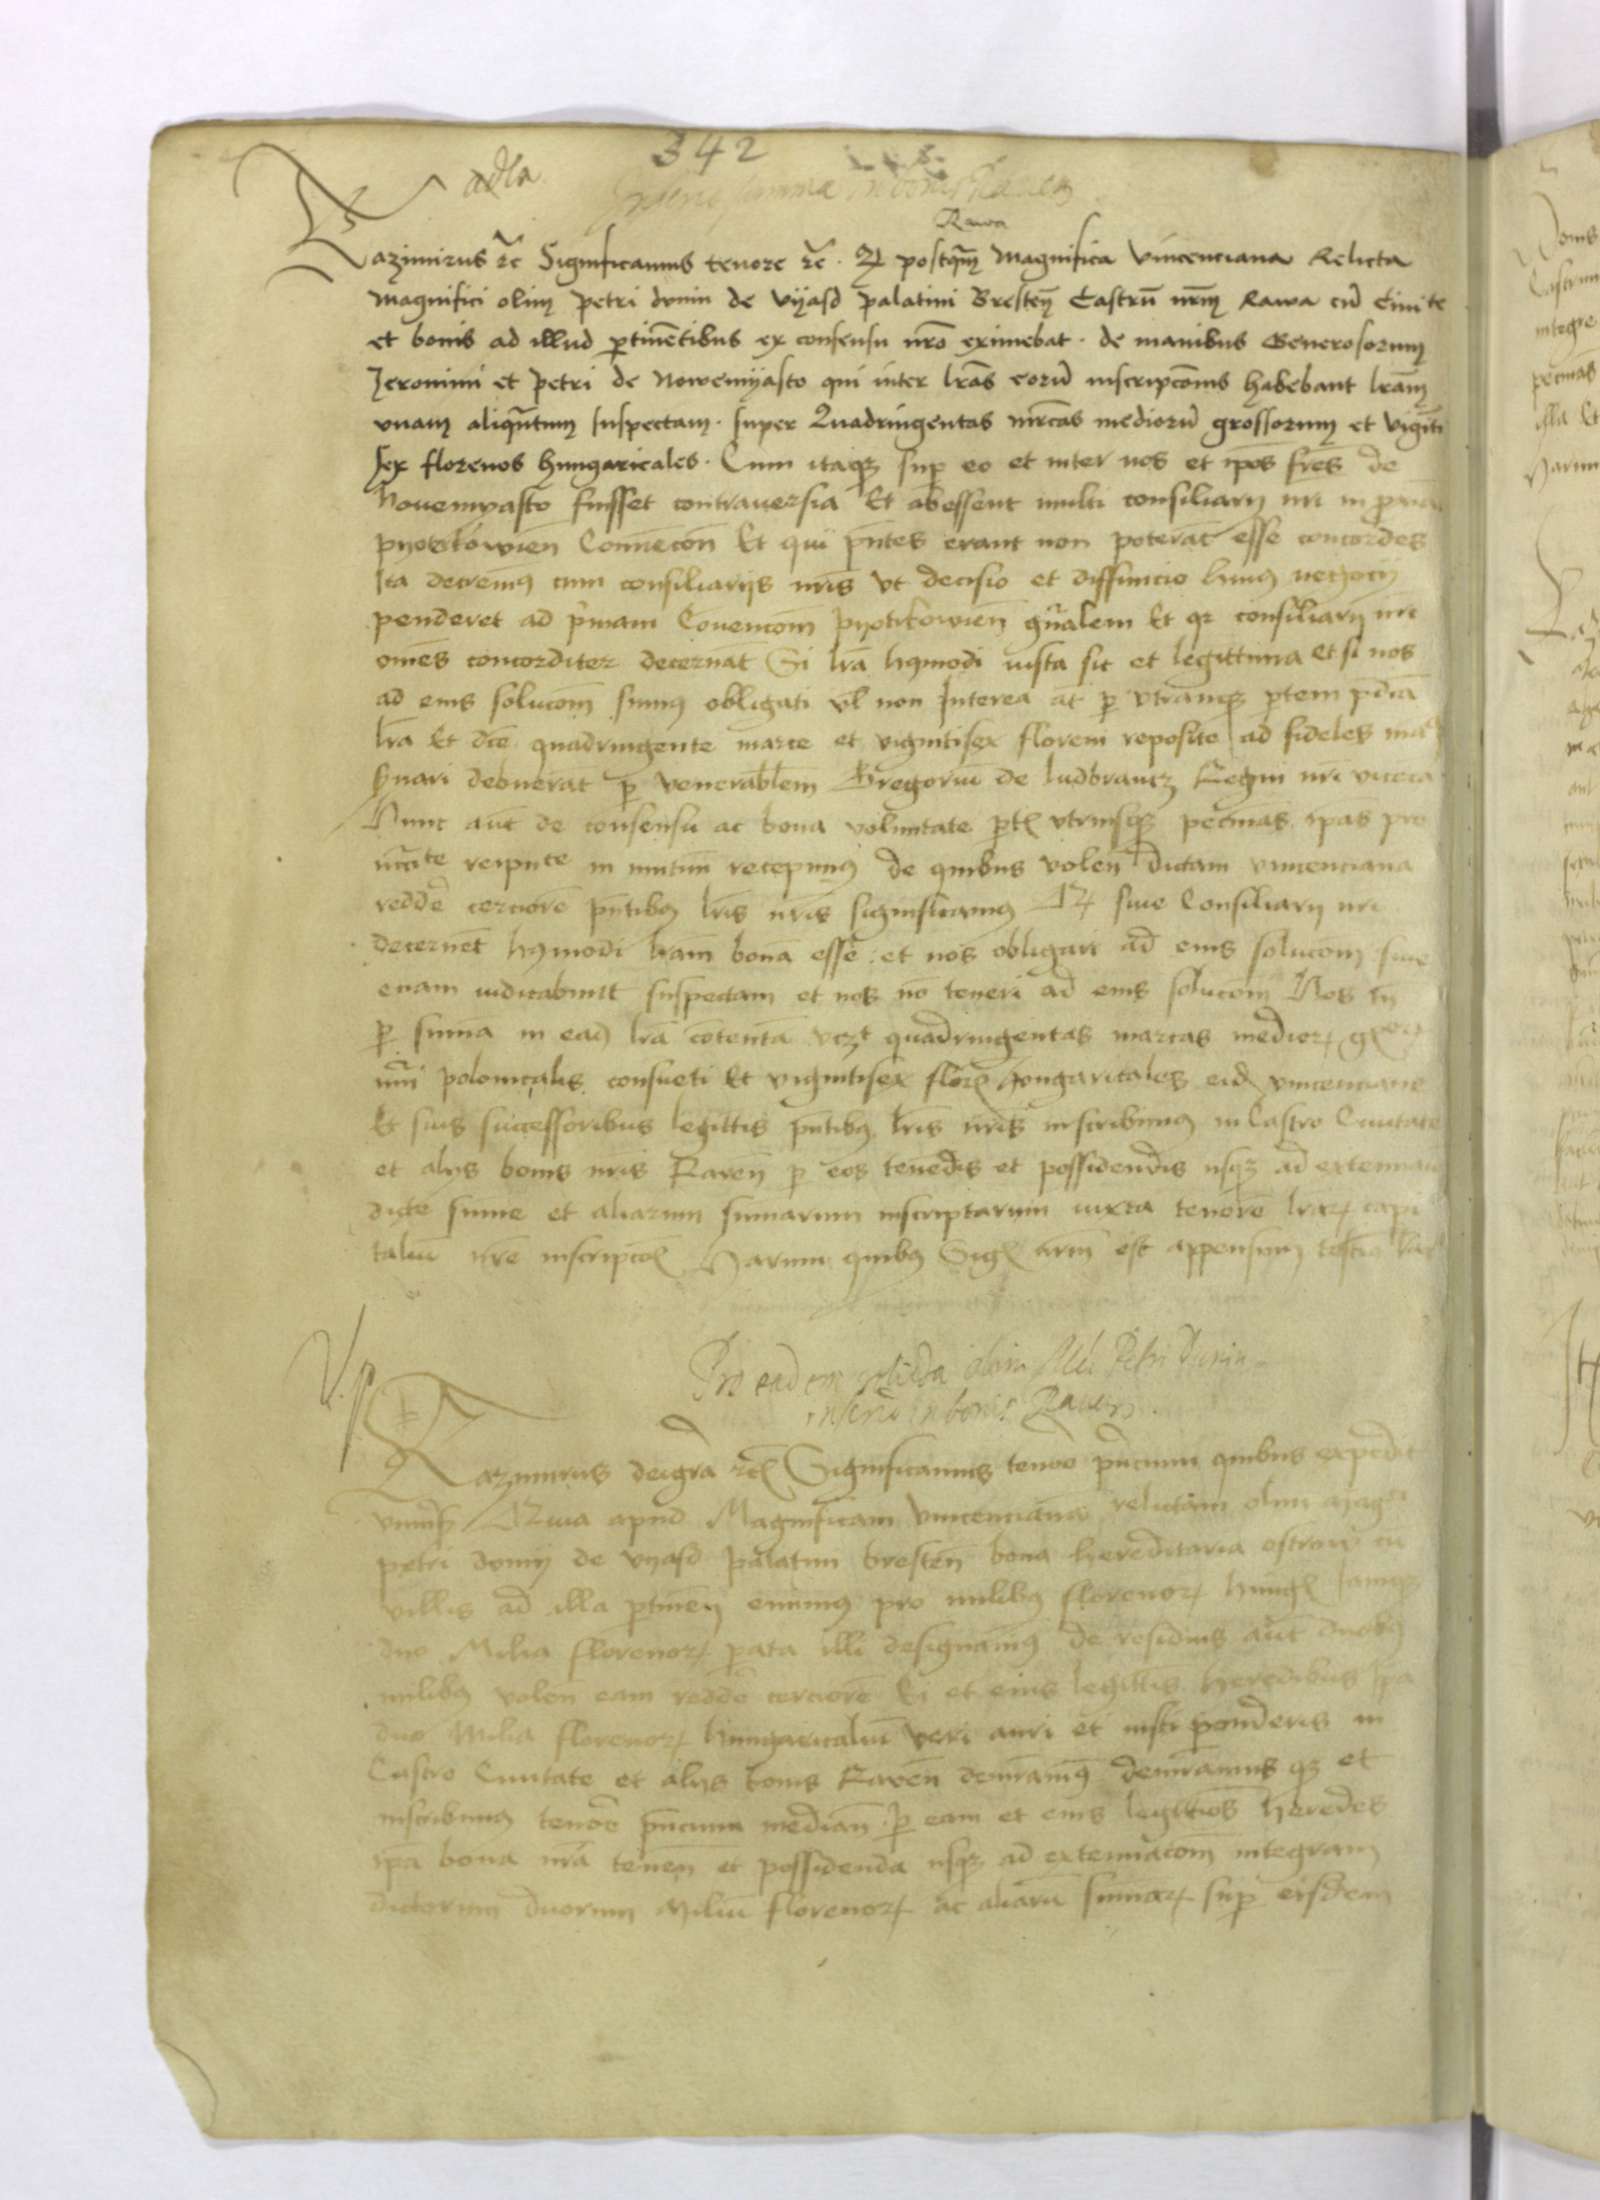 342
adla
Inscri summa in bonis Raven
Rawa
Kazimirus etc Significamus tenore etc. Q postqm Magnifica Vincenciana Relicta
Magnifici olim Petri dunin de Vyasd palatini Bresten Castru nrm Rawa cu Civite
et bonis ad illud ptinetibus ex consensu nro eximebat. de manibus Generosorum
Jeronimi et Petri de Nowemyasto qui inter lras eoru inscripcois habebant lram
vnam aliqntum suspectam. super Quadringentas mrcas medioru grossorum et viginti
sex florenos hungaricales. Cum itaqz sup eo et inter nos et ipos fres de
Novemyasto fuisset contraversia Et abessent multi consiliarij nri in
pyotrkowien Convecon Et qui pntes erant non poterat esse concordes
Ita decrevimus cum consiliarijs nris vt decisio et diffinicio huius negocij
penderet ad primam Covencom pyotrkowien gnralem Et qz consiliarij nri
omes concorditer decernat Si lra hqmodi iusta sit et legittima et si nos
ad eius solucom simus obligati vl non Interea at p vtramqz ptem pdca
lra Et dce quadringente marce et vigintisex floreni reposite ad fideles ma
svari debuerat p venerablem Gregoriu de ludbrancz Regni nri viceca
Nunc aut de consensu ac bona voluntate ptis vtriusqz pecunias ipas pro
ncite reipuce in mutuu recepimus de quibus volen dictam vincenciana
redde cerciore pntibus lris nris significamus Q sive Consiliarij nri
decernet hqmodi lram bona esse et nos obligari ad eius solucom sive
eciam iudicabunt suspectam et nos no teneri ad eius solucom Nos tn
p suma in eade lra cotenta vczt quadringentas marcas medior gr
nri polonicalis consueti Et vigintisex flor hongaricales eide vincenciane
Et suis successoribus legittis pntibus lris nris inscribimus in Castro Civitate
et alijs bonis nris Raven p eos tenedis et possidendis usqz ad extenuac
dicte sume et aliarum sumarum inscriptarum iuxta tenore lrar capi
taliu nre inscripcois Harum quibus Sigl nrm est appensum testio lra
V.p
Pro eadem relicta olim Mci Petri Dunin
inscrio in bonis Raven.
Kazimirus dei gra etc Significamus tenore pncium quibus expedit
vniversis Quia apud Magnificam vincenciana relictam olim Magci
petri donin de vyasd palatini bresten bona hereditaria ostrow cu
villis ad illa ptinen emimus pro milibus florenor hungl Jamqz
duo Milia florenor parata illi designamus de residuis aut duobus
milibus volen eam redde cerciore Ei et eius legittis heredibus ipa
duo Milia florenor hungaricaliu veri auri et iusti ponderis in
Castro Civitate et alijs bonis Raven demramus demramus qz et
inscribimus tenore pncium mediam p eam et eius legittios heredes
ipa bona nra tenen et possidenda usqz ad extenuacom integram
dictorum duorum Miliu florenor ac aliaru sumar sup eisdem